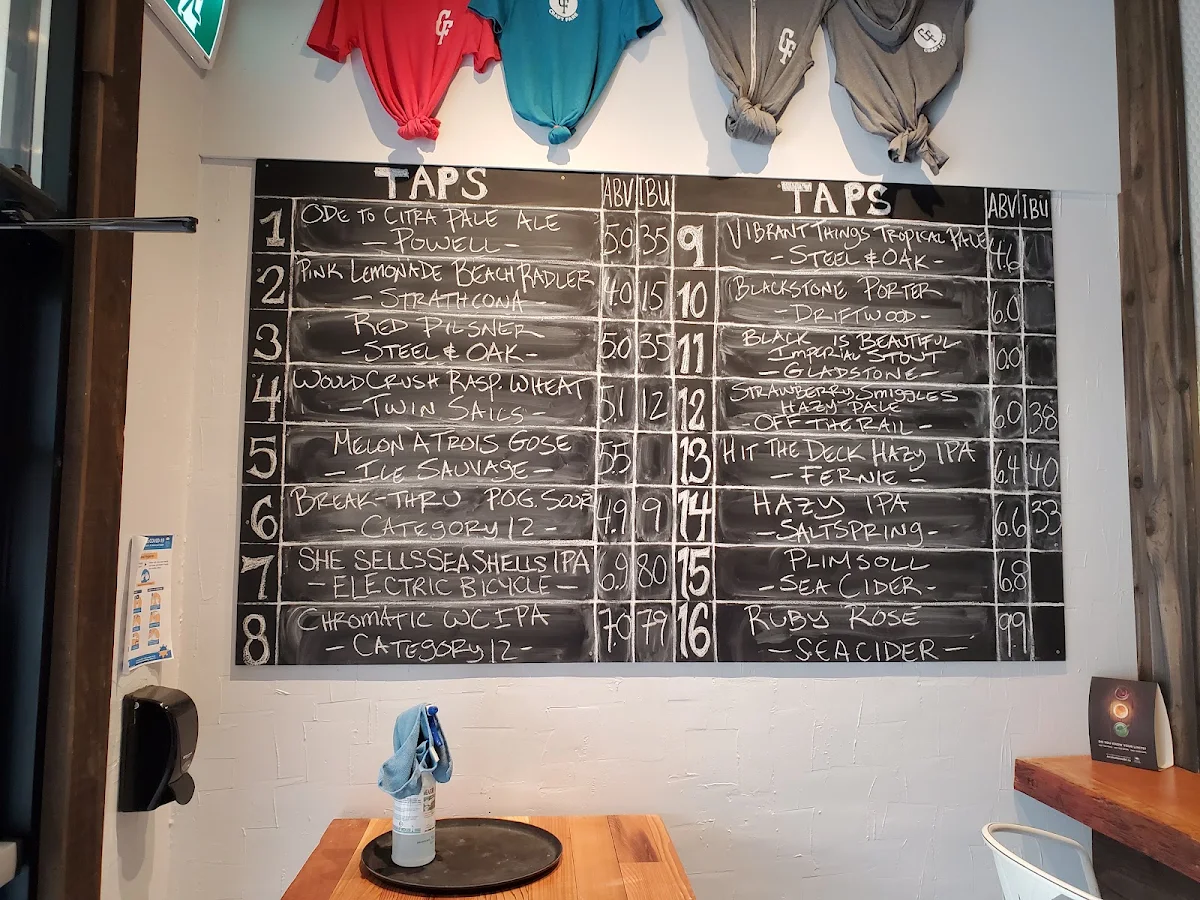 CF
CF
CF
CF
TAPS ABV IBU
1 ODE TO CITRA PALE ALE 5.0 35
- POWELL -
2 PINK LEMONADE BEACH RADLER 4.0 15
- STRATHCONA -
3 RED PILSNER 5.0 35
- STEEL & OAK -
4 WOULD CRUSH RASP. WHEAT 5.1 12
- TWIN SAILS -
5 MELON A TROIS GOSE 5.5
- ILE SAUVAGE -
6 BREAK-THRU P.O.G. SOUR 4.9 9
- CATEGORY 12 -
7 SHE SELLS SEA SHELLS IPA 6.9 80
- ELECTRIC BICYCLE -
8 CHROMATIC WC IPA 7.0 79
- CATEGORY 12 -
TAPS ABV IBU
9 VIBRANT THINGS TROPICAL PALE 4.6
- STEEL & OAK -
10 BLACKSTONE PORTER 6.0
- DRIFTWOOD -
11 BLACK IS BEAUTIFUL
IMPERIAL STOUT 10.0
- GLADSTONE -
12 STRAWBERRY SMIGGLES
HAZY PALE 6.0 38
- OFF THE RAIL -
13 HIT THE DECK HAZY IPA 6.4 40
- FERNIE -
14 HAZY IPA 6.6 33
- SALTSPRING -
15 PLIMSOLL 6.8
- SEA CIDER -
16 RUBY ROSE 9.9
- SEA CIDER -
COVID-19